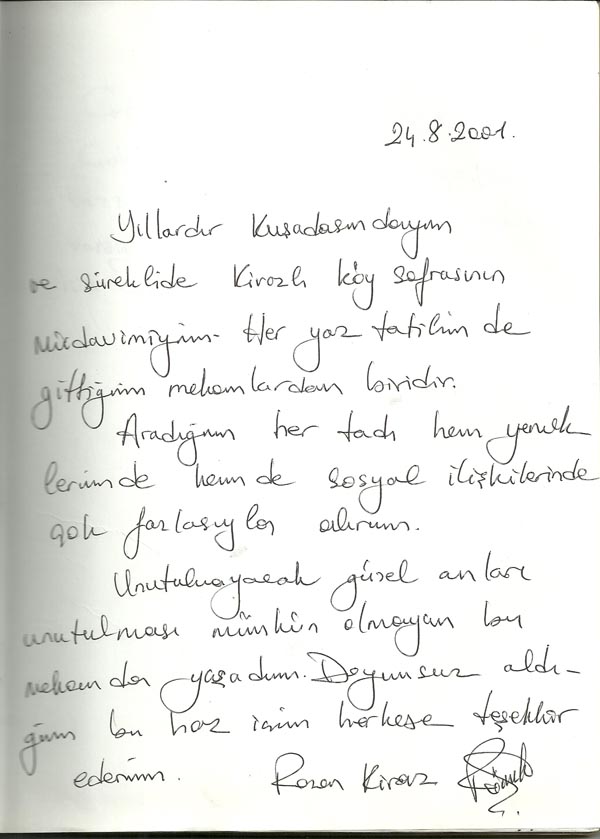 24.8.2001.
Yıllardır Kuşadasındayım
ve süreklide Kirazlı köy sofrasının
müdavimiyim. Her yaz tatilim de
gittiğim mekanlardan biridir.
Aradığım her tadı hem yemek
lerinde hem de sosyal ilişkilerinde
çok fazlasıyla alırım.
Unutulmayacak güzel anları
unutulması mümkün olmayan bu
mekan da yaşadım. Doyumsuz aldı-
ğım bu haz için herkese teşekkür
ederim. Rozan Kiraz